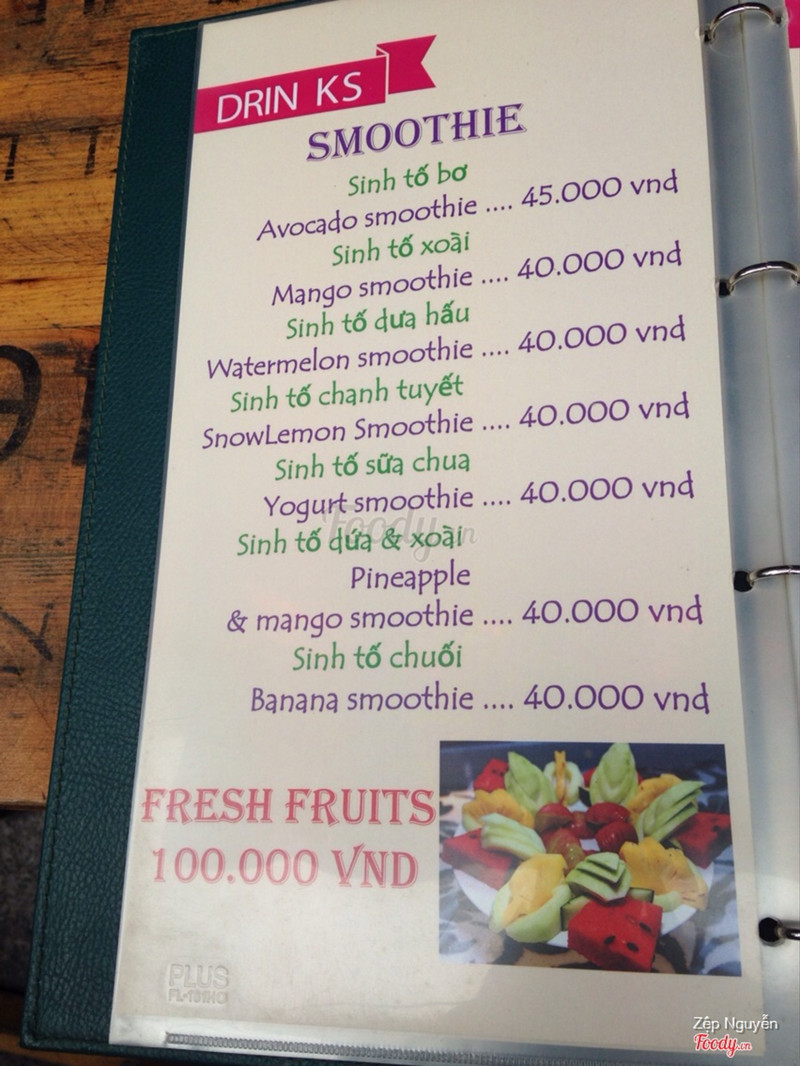 DRIN KS
SMOOTHIE
Sinh tố bơ
Avocado smoothie .... 45.000 vnd
Sinh tố xoài
Mango smoothie .... 40.000 vnd
Sinh tố dưa hấu
Watermelon smoothie .... 40.000 vnd
Sinh tố chanh tuyết
SnowLemon Smoothie .... 40.000 vnd
Sinh tố sữa chua
Yogurt smoothie .... 40.000 vnd
Foody.vn
Sinh tố dứa & xoài
Pineapple
& mango smoothie .... 40.000 vnd
Sinh tố chuối
Banana smoothie .... 40.000 vnd
FRESH FRUITS
100.000 VND
PLUS
Zệp Nguyễn
Foody.vn